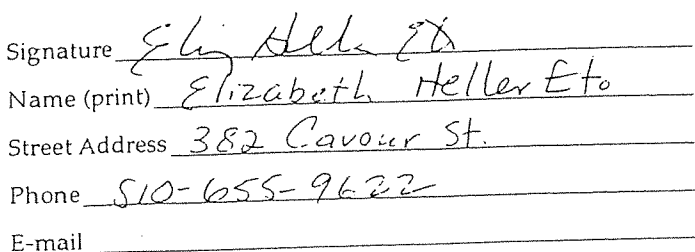 Signature
Name (print) Elizabeth Heller Eto
Street Address 382 Cavour St.
Phone 510-655-9622
E-mail